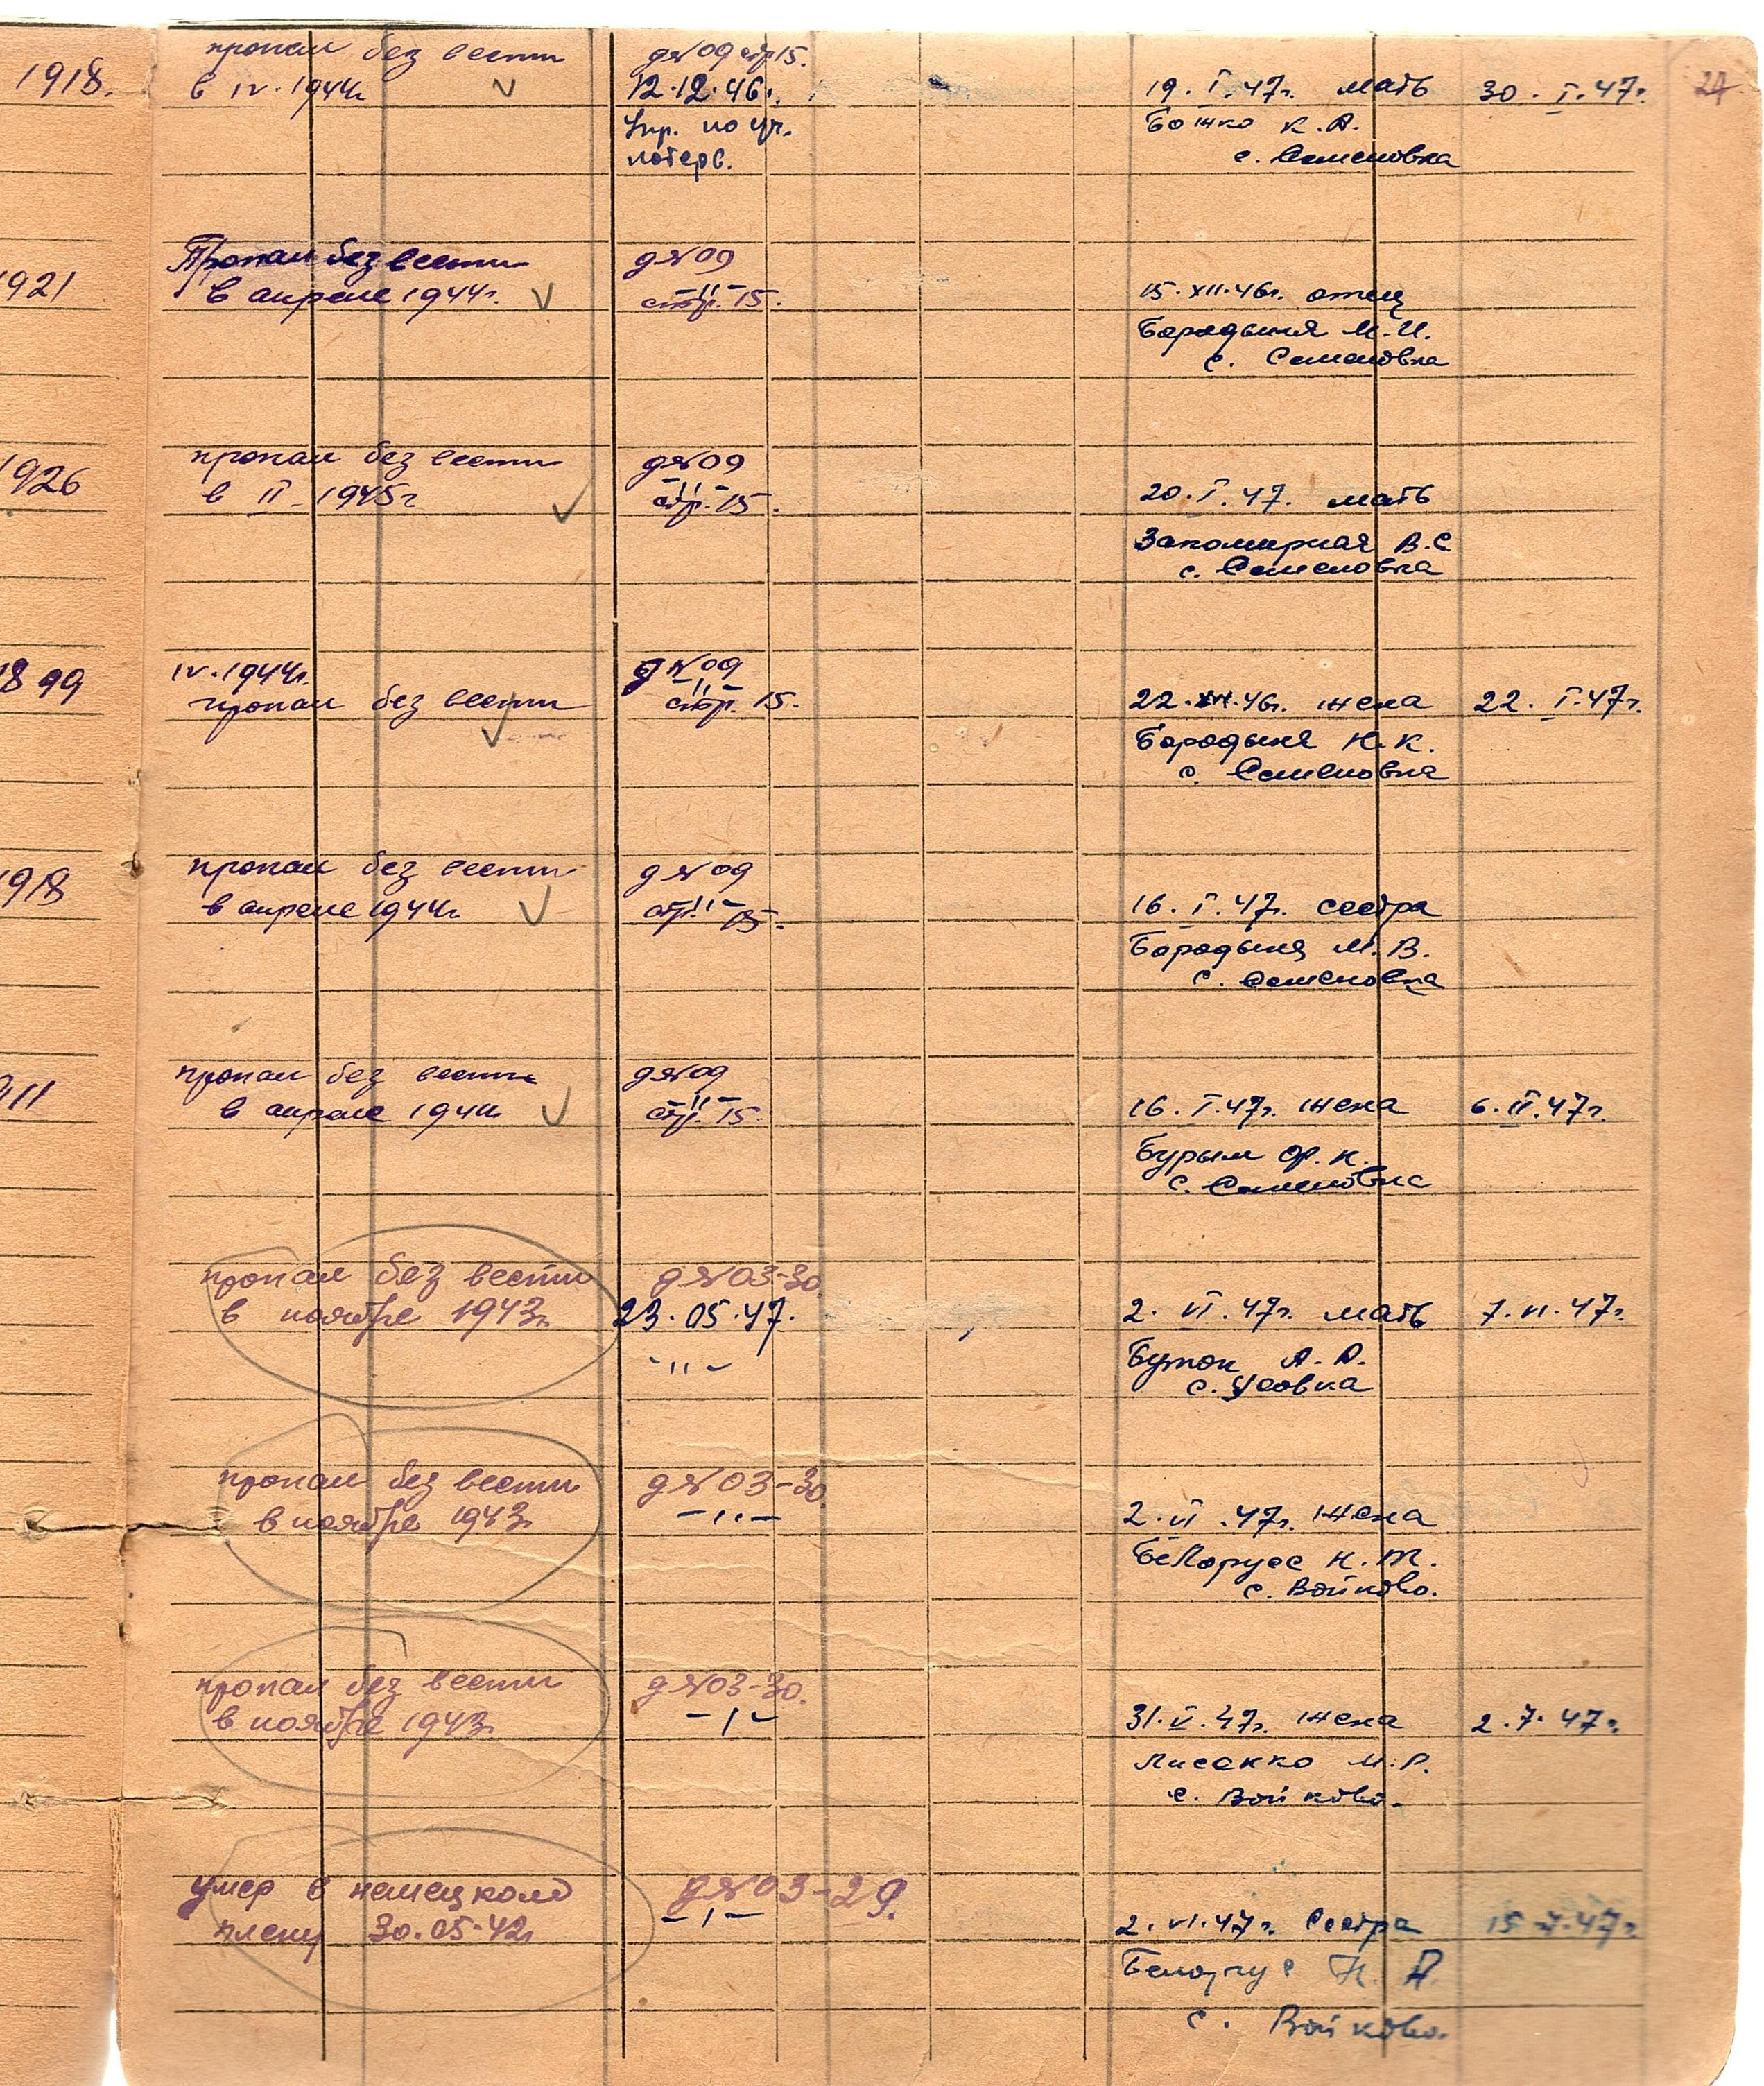 1918.
пропал без вести
в IV. 1944г.
д№09 стр 15.
12.12.46г.
Упр. по уч.
потерь.
19. I. 47г. мать
Божко К. А.
с. Семеновка
30. I. 47г.
24
1921
Пропал без вести
в апреле 1944г.
д№09
-"-
стр. 15.
15. XII. 46г. отец
Бородыня М. И.
с. Семеновка
1926
пропал без вести
в II - 1945г
д№09
-"-
стр. 15.
20. I. 47. мать
В. С.
с. Семеновка
1899
IV. 1944г.
пропал без вести
д№09
-"-
стр. 15.
22. XII. 46г. жена
Бородыня Н. К.
с. Семеновка
22. I. 47г.
1918
пропал без вести
в апреле 1944г.
д№09
-"-
стр. 15.
16. I. 47г. сестра
Бородыня М. В.
с. Семеновка
911
пропал без вести
в апреле 1944г
д№09
-"-
стр. 15.
16. I. 47г. жена
Бурым Ф. К.
с. Семеновка
6. II. 47г.
пропал без вести
в ноябре 1943г.
д№03-30.
23. 05. 47.
-"-
2. VI. 47г. мать
Буток А. А.
с. Усовка
7. VI. 47г.
пропал без вести
в ноябре 1943г.
д№03-30.
-"-
2. VI. 47г. жена
Белорусс Н. Т.
с. Войково.
пропал без вести
в ноябре 1943г.
д№03-30.
-"-
31. V. 47г. жена
Лисенко М. Р.
с. Войково.
2. 7. 47г.
умер в немецком
плену 30. 05. 42г
д№03-29.
-"-
2. VI. 47г. Сестра
Белорус Н. А.
с. Войково.
15. 7. 47г.